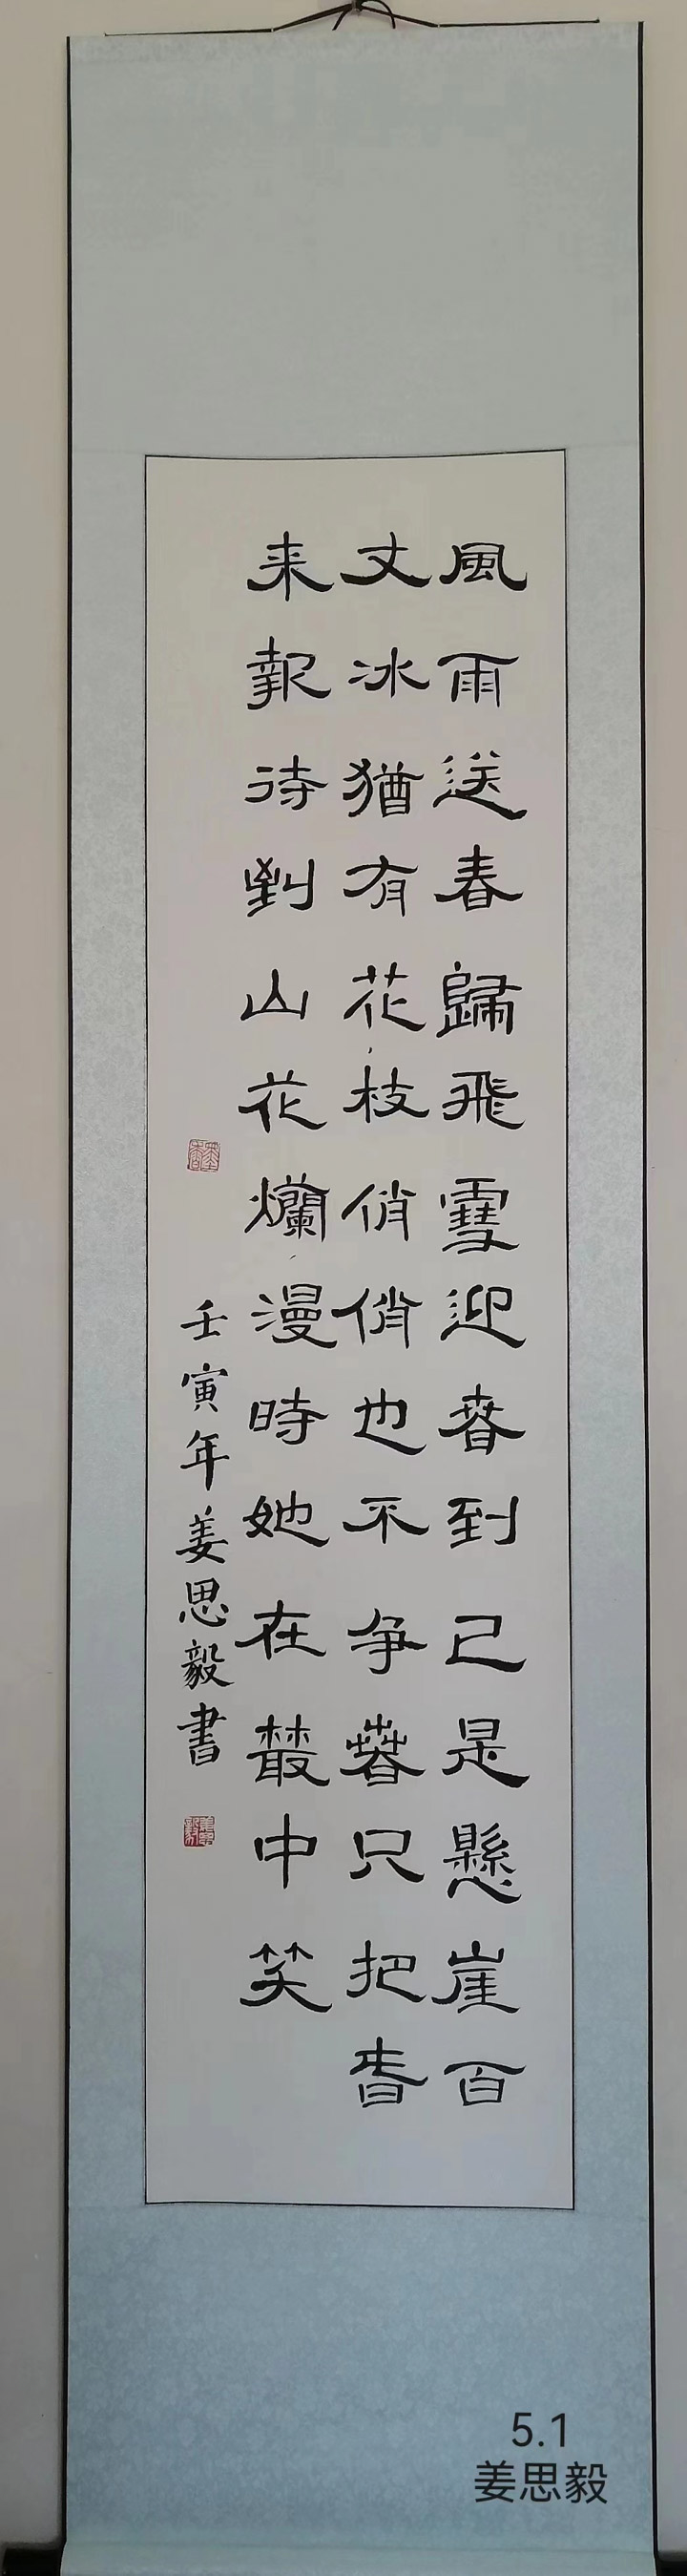 風雨送春歸飛雪迎春到已是懸崖百
丈冰猶有花枝俏俏也不争春只把春
来報待到山花爛漫時她在叢中笑
墨香
壬寅年姜思毅書
5.1
姜思毅